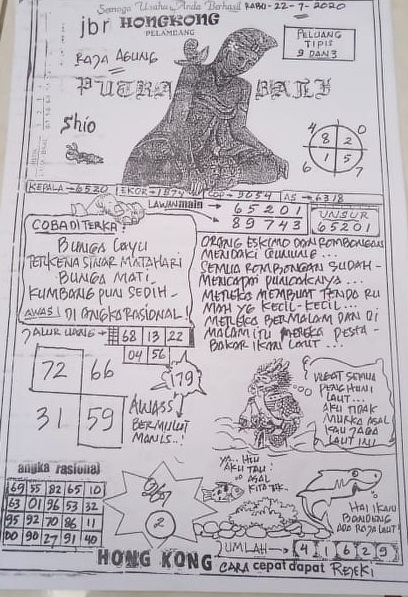 Semoga Usaha Anda Berhasil RABU-22-7-2020
jbr HONGKONG
PALEMBANG
PELUANG
TIPIS
9 DAN 3
RAJA AGUNG
PUTRA BALI
Shio
4 0
8 2
1 5
6 7
KEPALA → 6520 EKOR → 1879 COP → 9054 AS → 6318
LAWAN main → 65201
89743
UNSUR
65201
COBA DITERKA?
BUNGA LAYU
TERKENA SINAR MATAHARI
BUNGA MATI
KUMBANG PUN SEDIH
AWAS! DI ANGKA RASIONAL!
ORANG ESKIMO DAN ROMBONGAN
MENDAKI GUNUNG...
SEMUA ROMBONGAN SUDAH-
MENCAPAI PUNCAKNYA...
MEREKA MEMBUAT TENDA RU
MAH YG KECIL-KECIL...
MEREKA BERMALAM DAN DI
MALAM ITU MEREKA PESTA-
BAKAR IKAN LAUT..!
JALUR UANG → 68 13 22
04 56
72 66
31 59
179
AWASS
BERMULUT
MANIS..!
WAHAI SEMUA
PENGHUNI
LAUT...
AKU TIDAK
MURKA ASAL
KAU JAGA
LAUT INI
angka rasional
69 55 82 65 10
63 01 96 53 32
95 92 70 86 11
00 90 27 91 40
2
YA.. HIU
AKU TAU!
ASAL
KITA TAK
HAI IKAN
BANDENG
ADA RAJA LAUT
JUMLAH → 4 1 6 2 9
HONG KONG CARA cepat dapat REJEKI